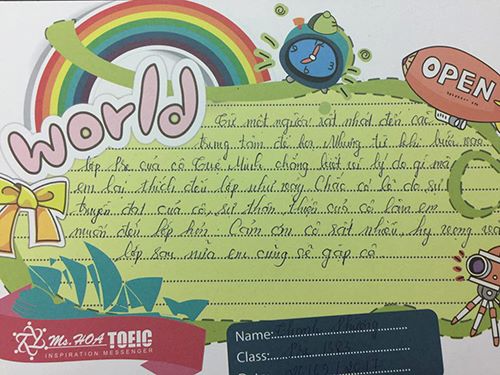 world
OPEN
Từ một người rất nhát đến các
trung tâm để học. Nhưng từ khi bước vào
lớp Pre của cô Tuệ Minh chẳng biết vì lý do gì mà
em lại thích đến lớp như vậy. Chắc có lẽ do sự
truyền đạt của cô, sự thân thiện của cô làm em
muốn đến lớp hơn. Cám ơn cô rất nhiều, hy vọng
lớp sau nữa em cũng sẽ gặp cô
Ms. HOA TOEIC
INSPIRATION MESSENGER
Name:
Class: Pre